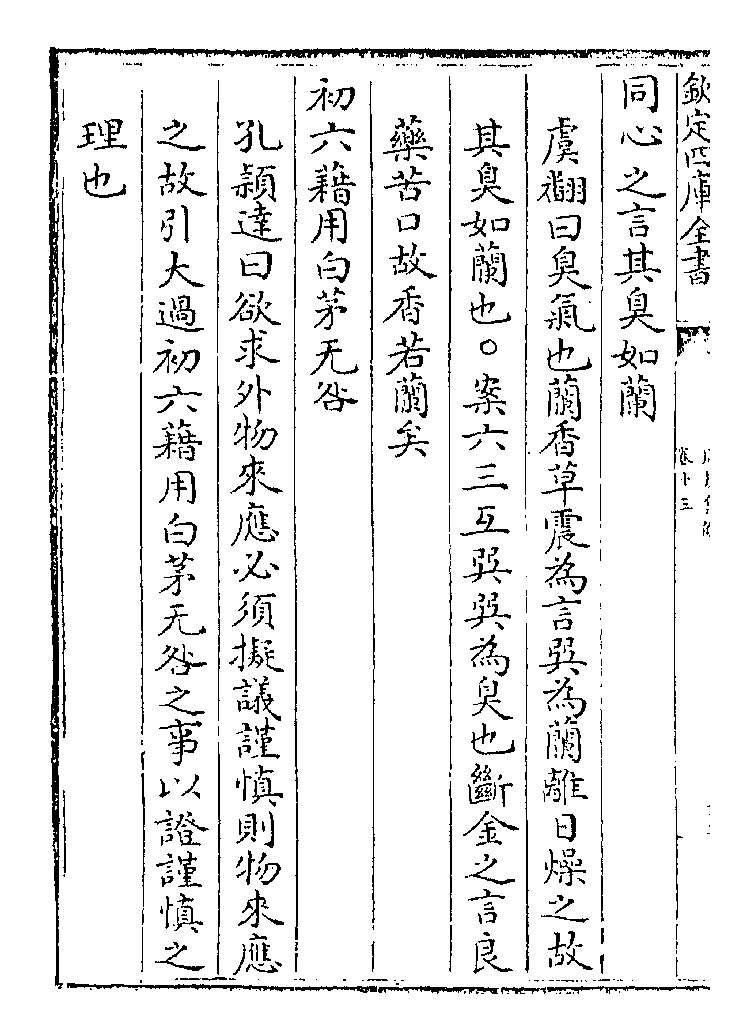 欽定四庫全書
卷十三
同心之言其臭如蘭
虞翻曰臭氣也蘭香草震為言巽為蘭離日燥之故
其臭如蘭也○案六三互巽巽為臭也斷金之言良
藥苦口故香若蘭矣
初六藉用白茅无咎
孔穎達曰欲求外物來應必須擬議謹慎則物來應
之故引大過初六藉用白茅无咎之事以證謹慎之
理也